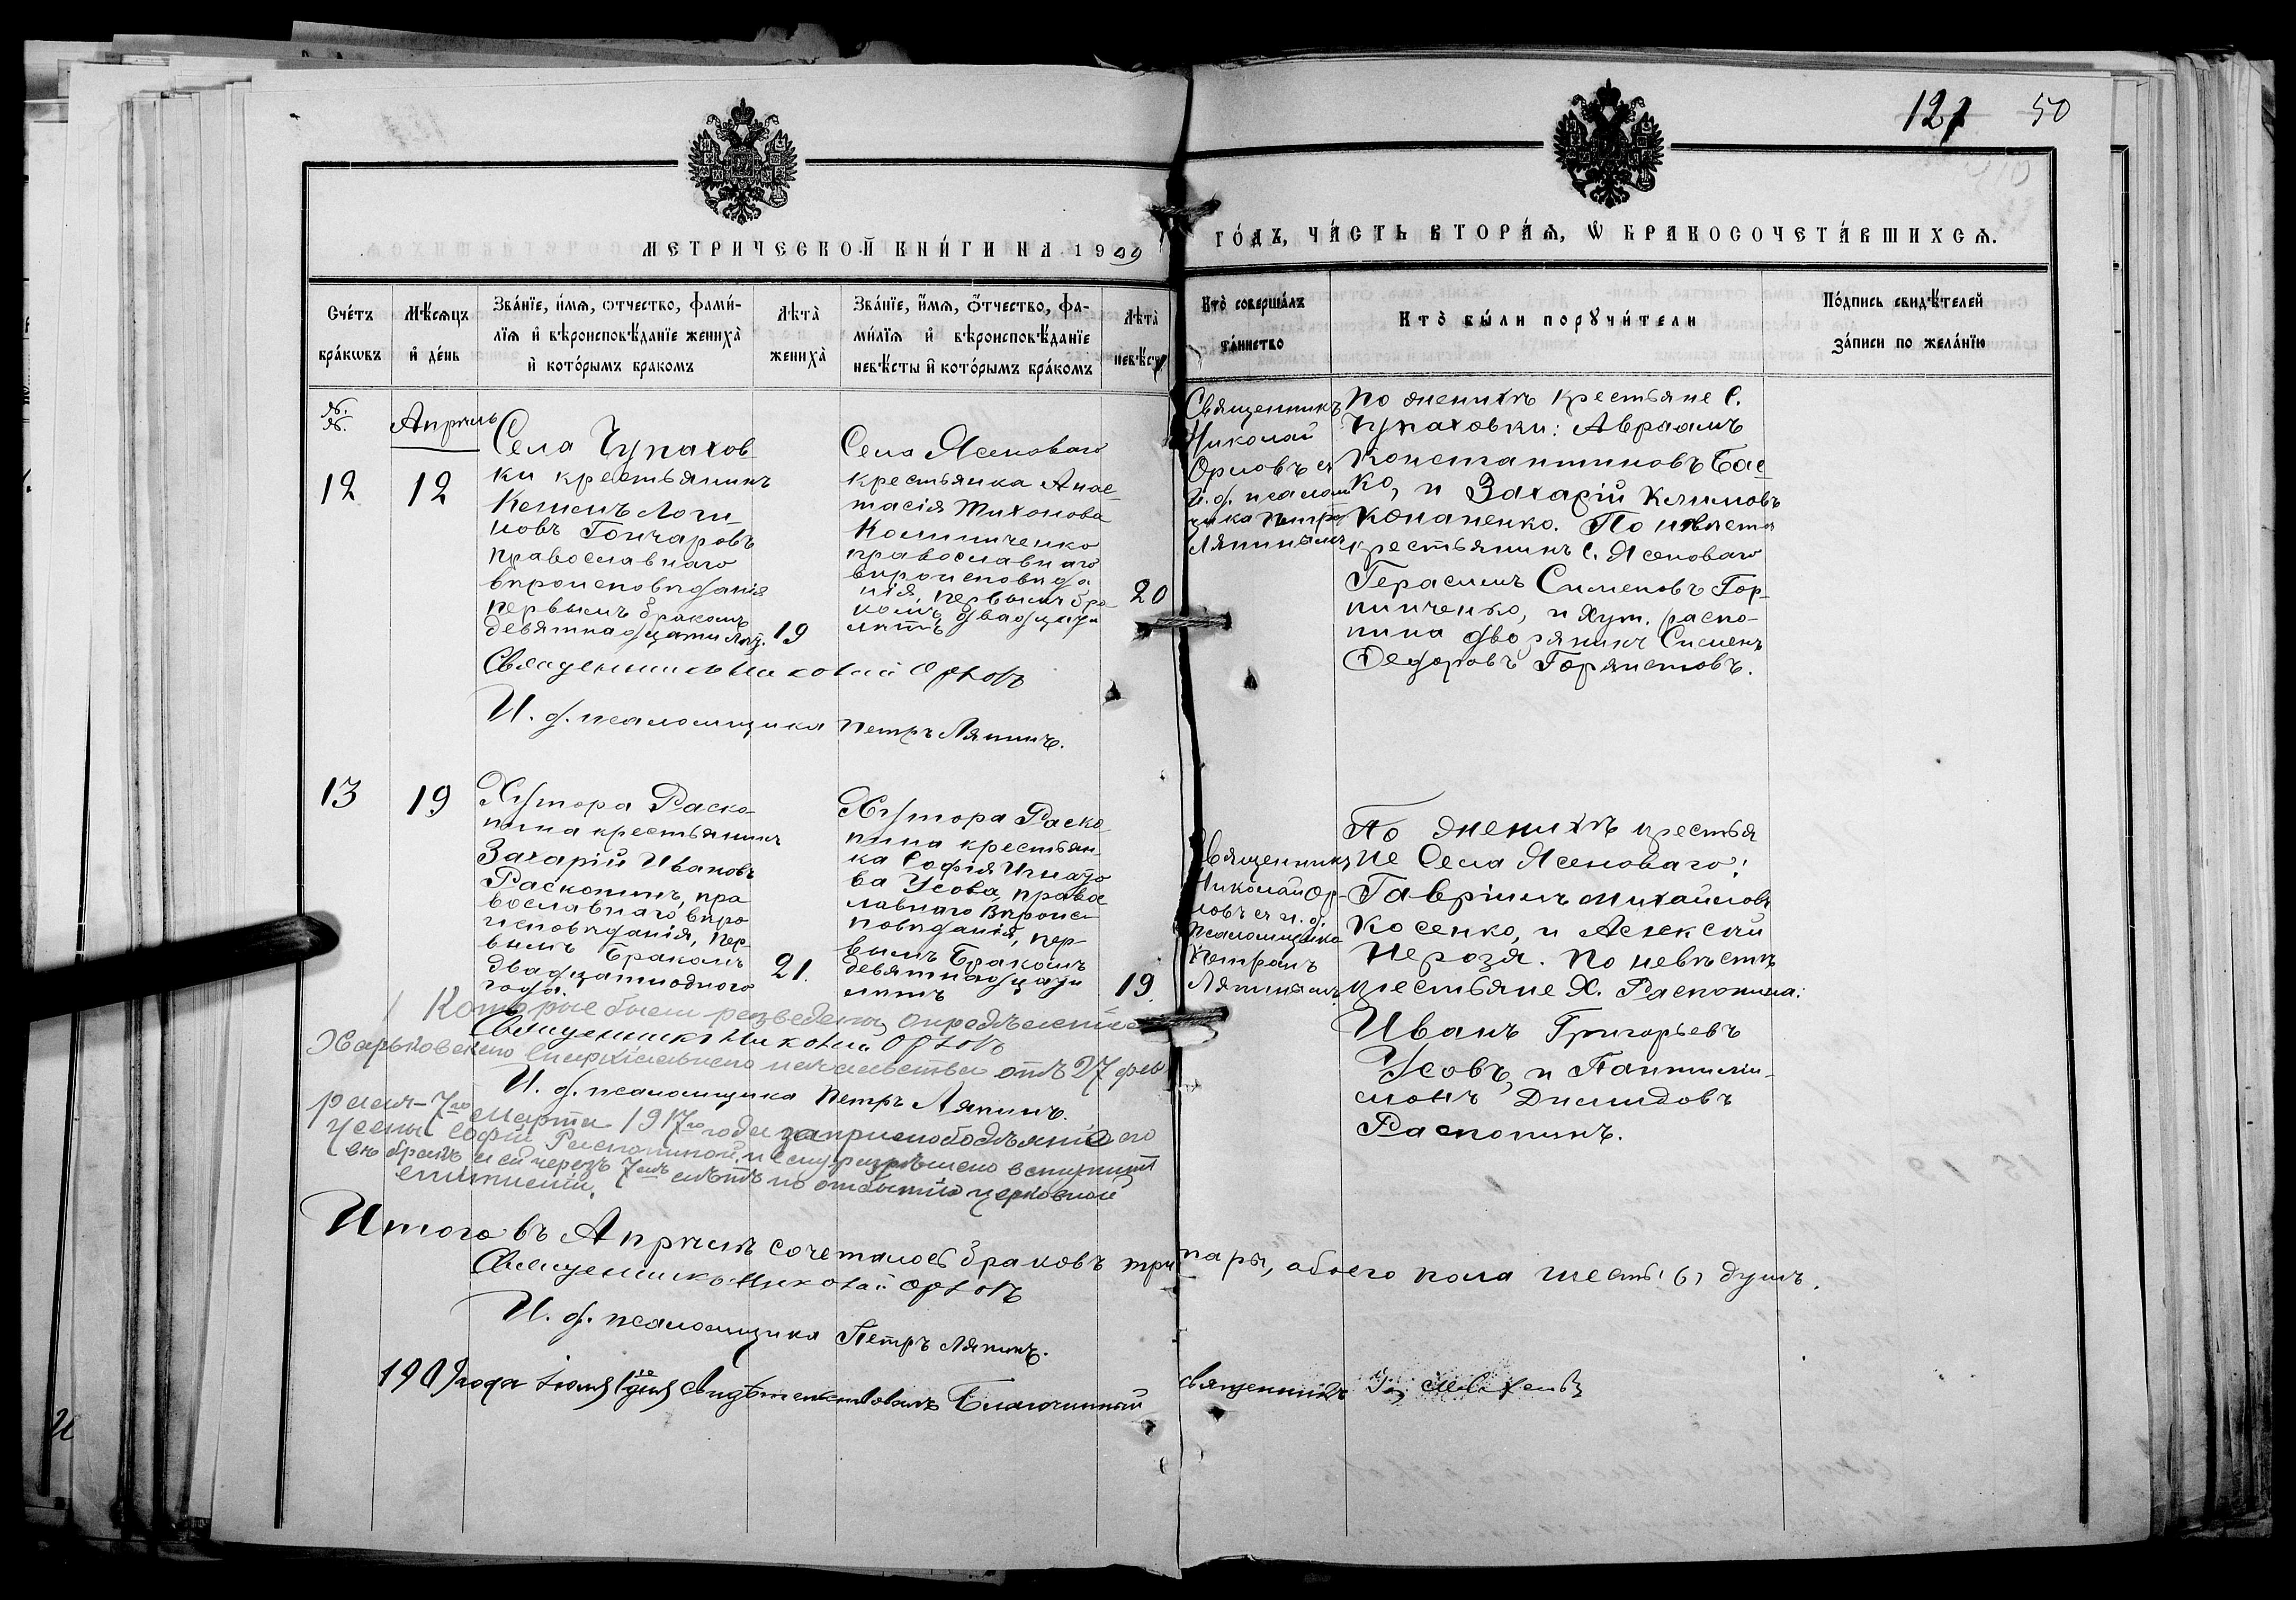 121 50
МЕТРИЧЕСКОЙ КНИ́ГИ НА 1909
ГО́ДЪ, ЧА́СТЬ ВТОРА́Ѧ, Ѡ БРАКОСОЧЕТА́ВШИХСѦ.
Сче́тъ
бра́кѡвъ
Мѣ́сѧцъ
и҆ де́нь
Зва́нїе, и҆́мѧ, ѻ҆тчество, фами́-
лїѧ и҆ вѣроисповѣ́данїе жениха̀
и҆ кото́рымъ бракомъ
Лѣта̀
жениха̀
Зва́нїе, и҆́мѧ, ѻ҆́тчество, фа-
ми́лїѧ и҆ вѣроисповѣ́данїе
невѣ́сты и҆ кото́рымъ бра́комъ
Лѣта̀
невѣ́сты
Кто̀ соверша́лъ
та́инство
Кто̀ бы́ли порꙋчи́тели
По́дпись свидѣ́телей
за́писи по жела́нїю
№.
№.
Апрѣль
12
12
Села Чупахов-
ки крестьянинъ
Климъ Логи-
новъ Гончаровъ
православнаго
вѣроисповѣданія
первымъ бракомъ
девятнадцати лѣтъ.
19
Села Ясеноваго
крестьянка Анас-
тасія Тихонова
Калиниченко
православнаго
вѣроисповѣда
нія, первымъ бра
комъ двадцати
лѣтъ
20
Священникъ
Николай
Орловъ съ
и. д. псалом
щика Петро
Ляпинымъ
По женихѣ крестьяне с.
Чупаховки: Авраамъ
Константиновъ Бас-
ко, и Захарій Климовъ
Конаненко. По невѣстѣ
крестьянинъ с. Ясеноваго
Герасимъ Сименовъ Гор-
пинченко, и хут. Раско-
пина дворянинъ Сименъ
Федоровъ Горяистовъ.
Священникъ Николай Орловъ
И. д. псаломщика Петръ Ляпинъ.
13
19
Хутора Раско-
пина крестьянинъ
Захарій Ивановъ
Раскопинъ, пра
вославнаго вѣро
исповѣданія, пер-
вымъ бракомъ
двадцатиодного
года.
21.
Хутора Раско
пина крестьян-
ка Софія Игнато
ва Усова, правос
лавнаго вѣроис-
повѣданія, пер-
вымъ бракомъ
девятнадцати
лѣтъ
19.
Священникъ
Николай Ор-
ловъ съ и. д.
псаломщика
Петромъ
Ляпинымъ.
По женихѣ крестья
не Села Ясеноваго:
Гавріилъ Михайловъ
Косенко, и Алексѣй
Нерозя. По невѣстѣ
крестьяне х. Раскопина:
Иванъ Григорьевъ
Усовъ, и Пантилій-
монъ Димидовъ
Раскопинъ.
Которые были разведены опредѣленіе
Священникъ Николай Орловъ
Харьковскаго Епархіальнаго начальства отъ 27 фев
И. д. псаломщика Петръ Ляпинъ.
раля – 7го Марта 1917го года за прелюбодѣяніе его
жены Софіи Раскопиной и ему разрѣшено вступить
въ бракъ и ей черезъ 7мь лѣтъ по отбытіи церковной
епитиміи.
Итого въ Апрѣлѣ сочеталось браковъ три пары, обоего пола шесть (6) душъ.
Священникъ Николай Орловъ
И. д. псаломщика Петръ Ляпинъ.
1909 года Іюля 1го дня свидѣтельствовалъ Благочинный священникъ